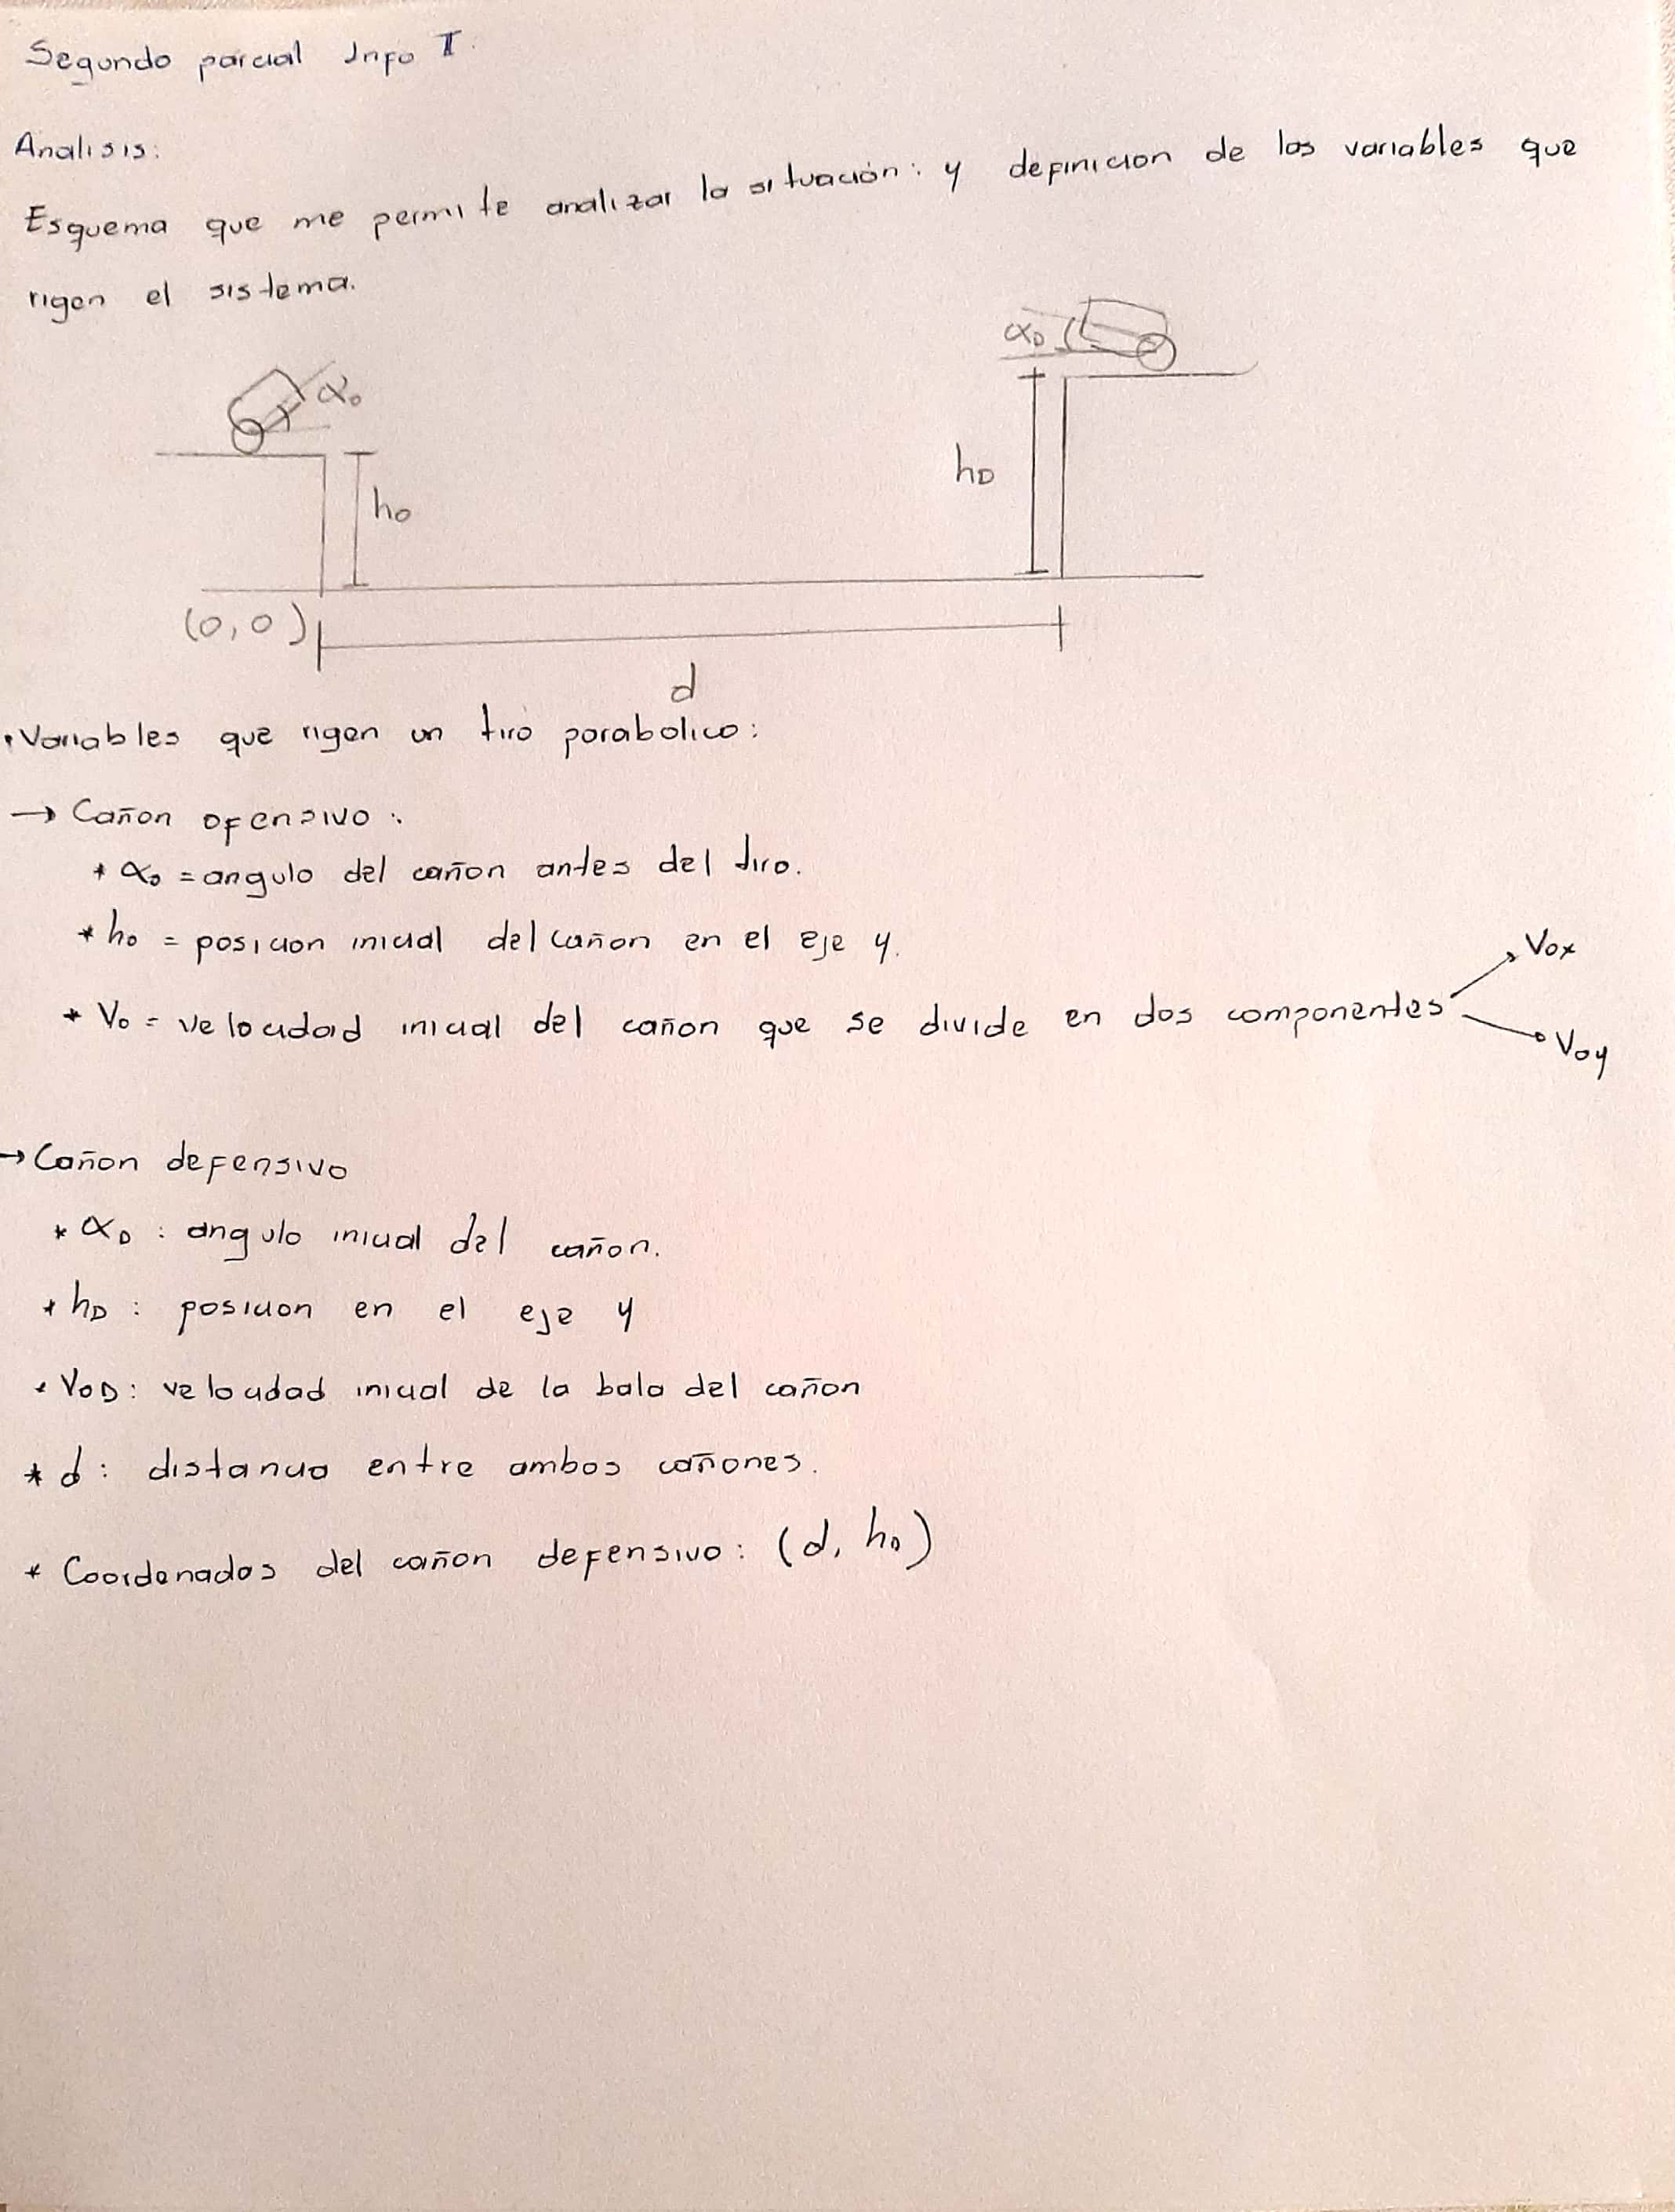 Segundo parcial Info II.
Analisis:
Esquema que me permite analizar la situación: y definicion de las variables que
rigen el sistema.
αo
αD
ho
hD
(0,0)
d
• Variables que rigen un tiro parabolico:
→ Cañon ofensivo:
* αo = angulo del cañon antes del tiro.
* ho = posicion inicial del cañon en el eje y.
* Vo = velocidad inicial del cañon que se divide en dos componentes
Vox
Voy
→ Cañon defensivo
* αD : angulo inicial del cañon.
* hD : posicion en el eje y
* VoD: velocidad inicial de la bala del cañon
* d: distancia entre ambos cañones.
* Coordenadas del cañon defensivo: (d, hD)